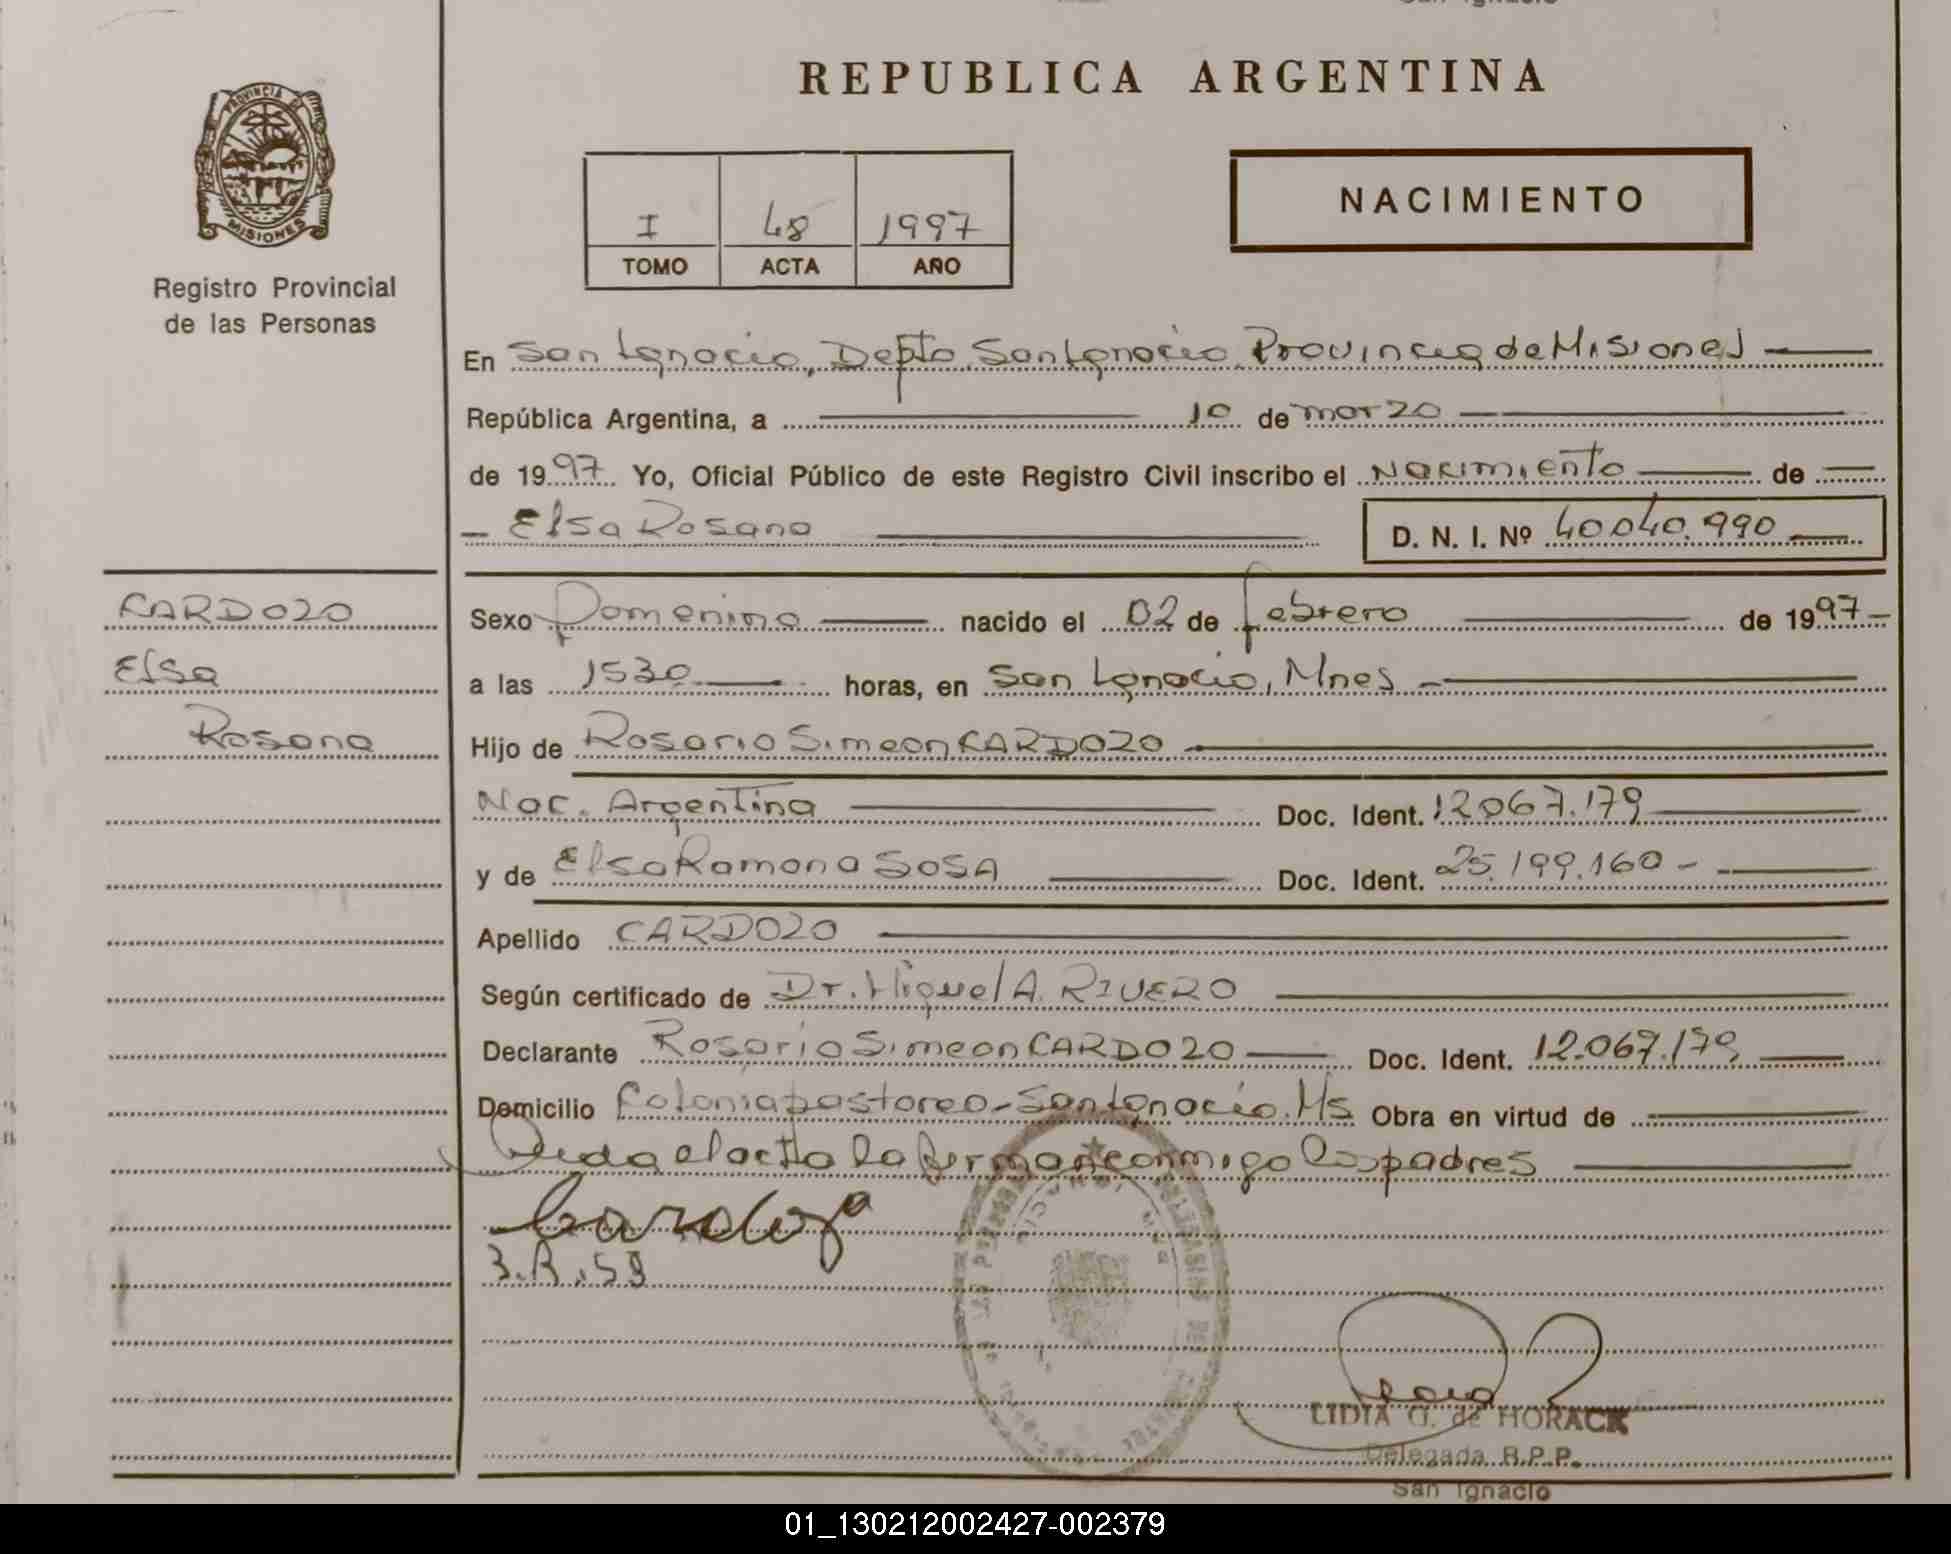 REPUBLICA ARGENTINA
PROVINCIA DE
MISIONES
Registro Provincial
de las Personas
I 48 1997
TOMO ACTA AÑO
NACIMIENTO
En San Ignacio, Depto. San Ignacio Provincia de Misiones
República Argentina, a 10 de marzo
de 1997. Yo, Oficial Público de este Registro Civil inscribo el Nacimiento de
Elsa Rosana D. N. I. Nº 40.040.990
CARDOZO
Elsa
Rosana
Sexo Femenino nacido el 02 de febrero de 1997
a las 1530 horas, en San Ignacio, Mnes
Hijo de Rosario Simeon CARDOZO
Nac. Argentina Doc. Ident. 12.067.179
y de Elsa Ramona SOSA Doc. Ident. 25.199.160
Apellido CARDOZO
Según certificado de Dr. Miguel A. RIVERO
Declarante Rosario Simeon CARDOZO Doc. Ident. 12.067.179
Domicilio Colonia pastoreo - San Ignacio. Ms Obra en virtud de
Leida el acta la firman conmigo los padres
Cardozo
LIDIA G. de HORACK
Delegada R.P.P.
San Ignacio
01_130212002427-002379